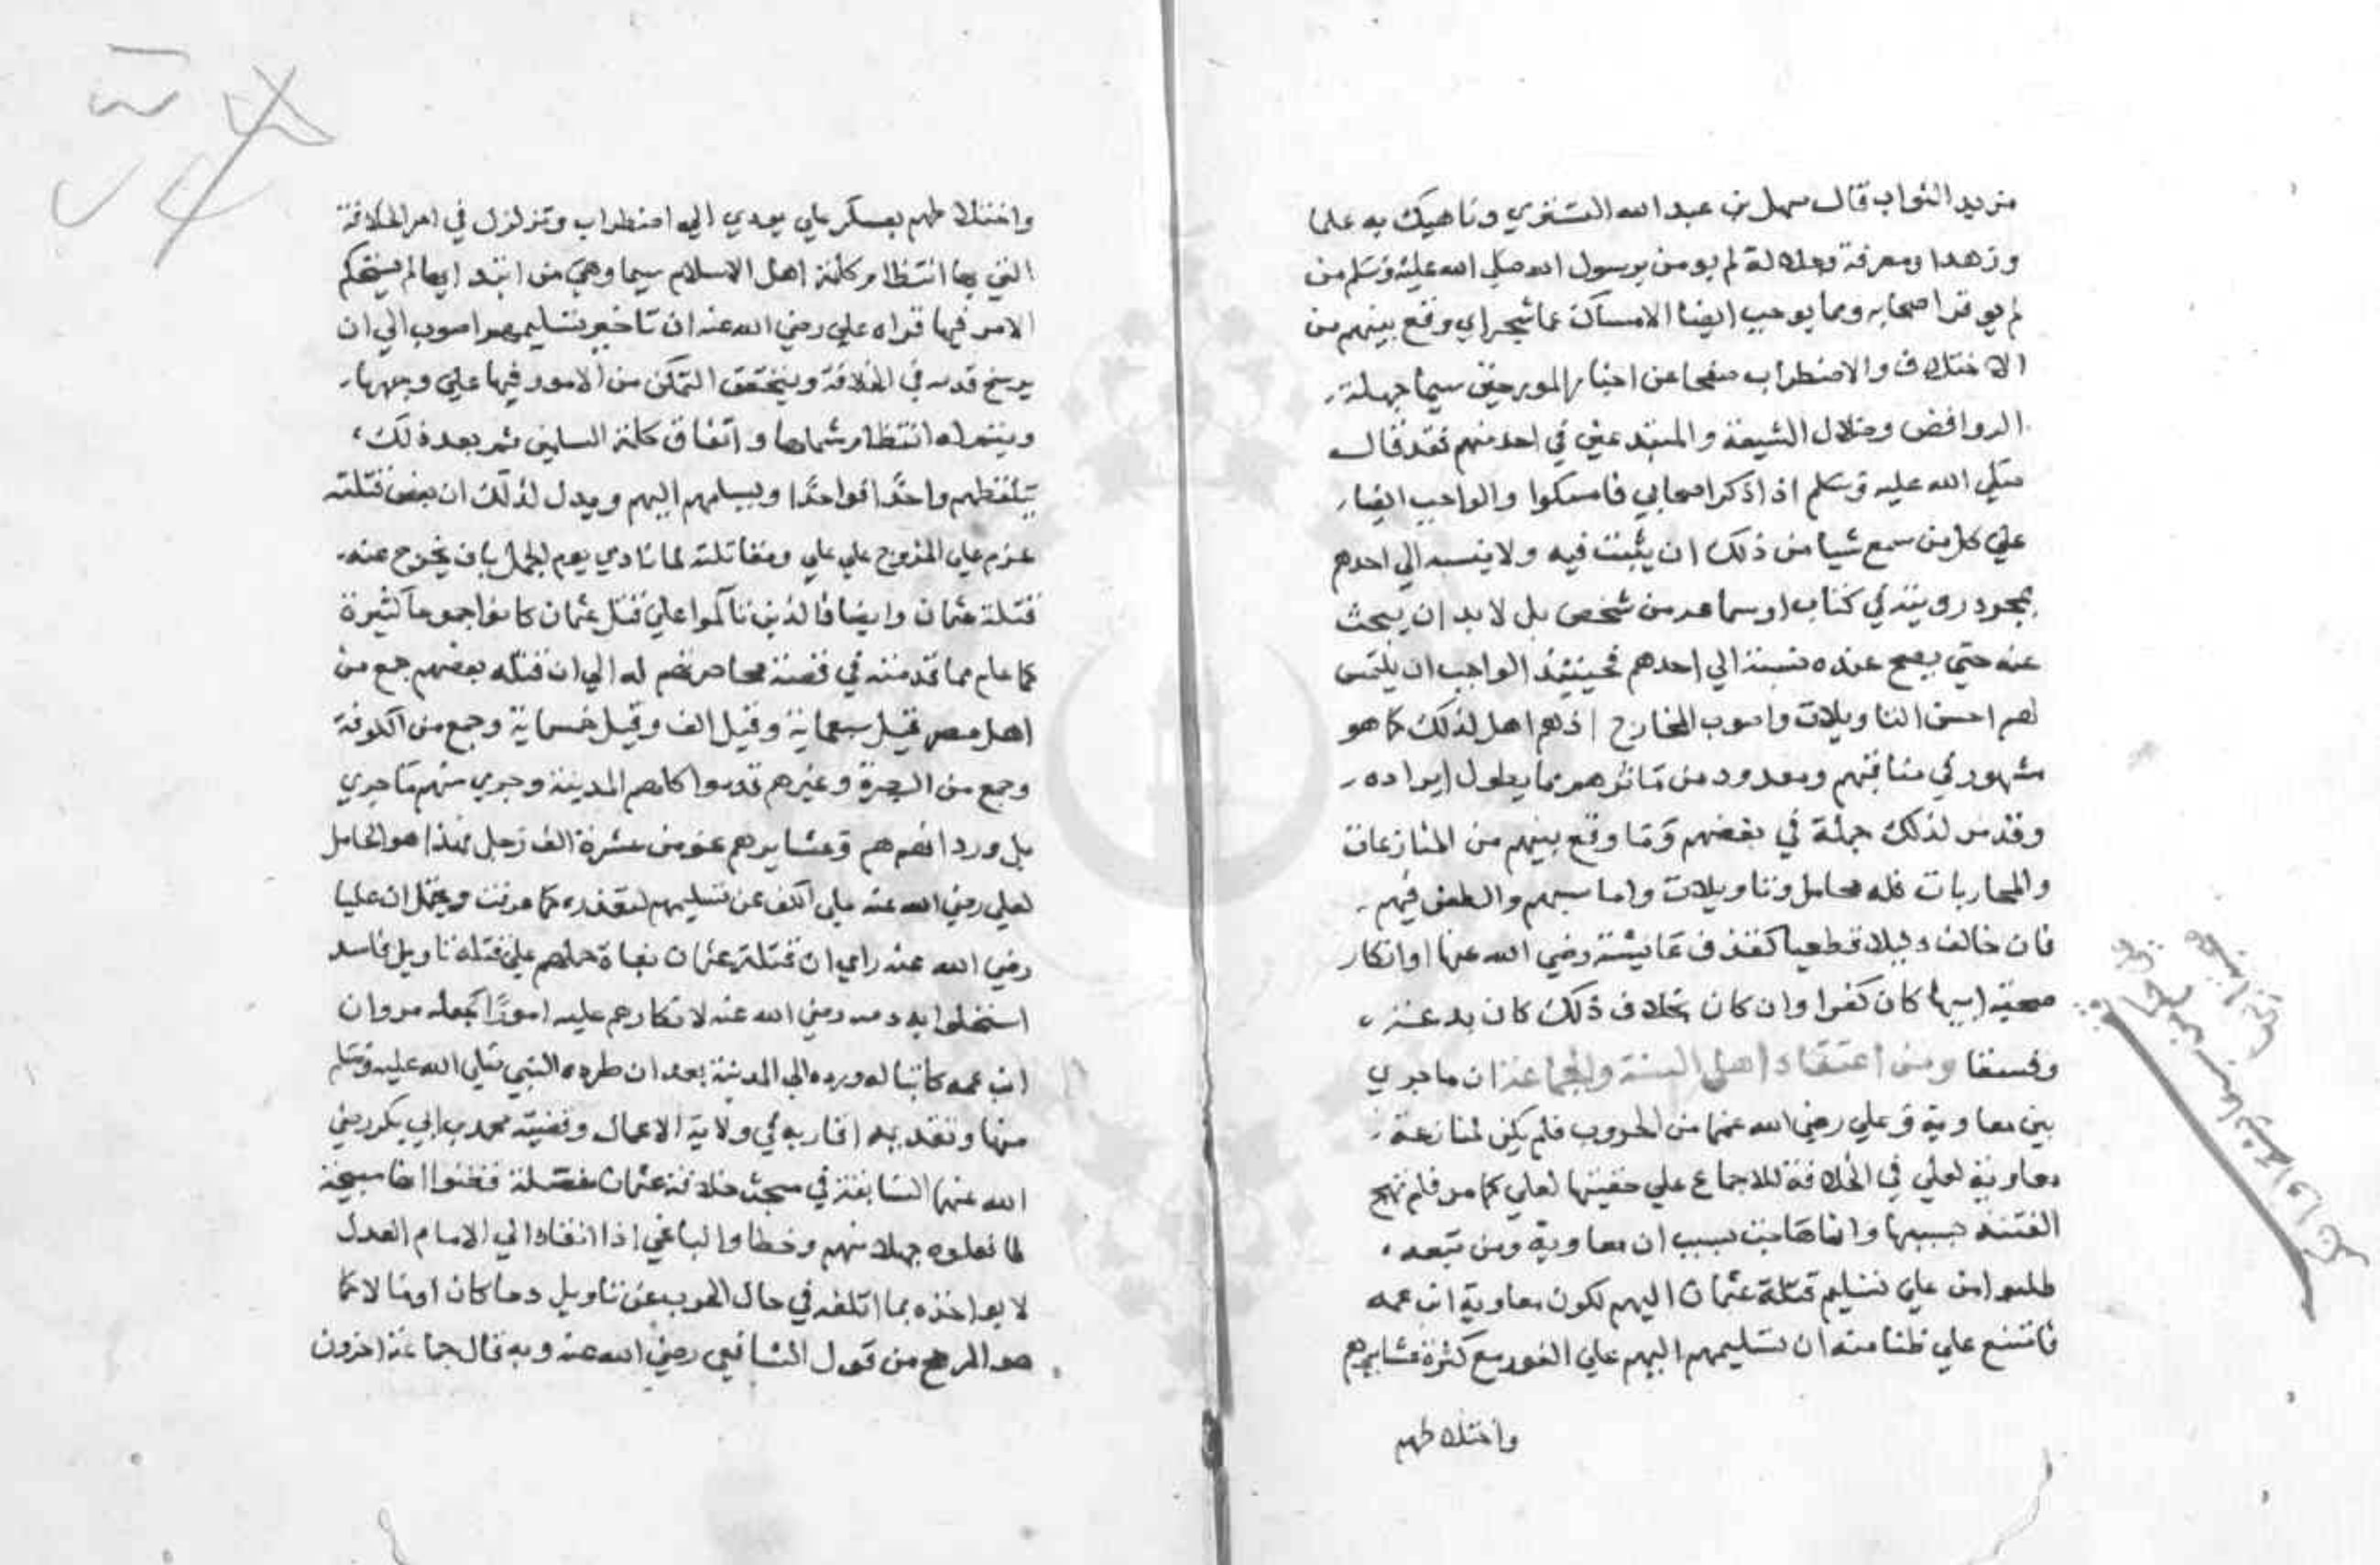 مزيد الثواب قال سهل بن عبد الله التستري وناهيك به علما
وزهدا ومعرفة وجلالة لم يومن برسول الله صلى الله عليه وسلم من
لم يوقر اصحابه ومما يوجب ايضا الامساك عما شجر اي وقع بينهم من
الاختلاف والاضطراب صفحا عن اخبار المورخين سيما جهلة
الروافض وضلال الشيعة والمبتدعين في احد منهم فقد قال
صلي الله عليه وسلم اذا ذكر اصحابي فامسكوا والواجب ايضا
علي كل من سمع شيا من ذلك ان يثبت فيه ولا ينسبه الي احدهم
بمجرد رويته في كتاب او سماعه من شخص بل لا بد ان يبحث
عنه حتي يصح عنده نسبته الي احدهم فحينئذ الواجب ان يلتمس
لهم احسن التاويلات واصوب المخارج اذ هم اهل لذلك كما هو
مشهور في مناقبهم ومعدود من ماثرهم مما يطول ايراده
وقد مر لذلك جملة في بعضهم وما وقع بينهم من المنازعات
والمحاربات فله محامل وتاويلات واما سبهم والطعن فيهم
فان خالف دليلا قطعيا كقذف عايشة رضي الله عنها او انكار
صحبة ابيها كان كفرا وان كان بخلاف ذلك كان بدعة
وفسقا ومن اعتقاد اهل السنة والجماعة ان ما جري
بين معاوية وعلي رضي الله عنهما من الحروب فلم يكن لمنازعة
معاوية لعلي في الخلافة للاجماع علي حقيتها لعلي كما مر فلم تهج
الفتنة بسببها وانما هاجت بسبب ان معاوية ومن تبعه
طلبوا من علي تسليم قتلة عثمان اليهم لكون معاوية ابن عمه
فامتنع علي ظنا منه ان تسليمهم اليهم علي الفور مع كثرة عشايرهم
واختلاطهم
واختلاطهم بعسكر علي يودي الي اضطراب وتزلزل في امر الخلافة
التي بها انتظام كلمة اهل الاسلام سيما وهي من ابتدايها لم يستحكم
الامر فيها فراه علي رضي الله عنه ان تاخير تسليمهم اصوب الي ان
يرسخ قدمه في الخلافة ويتحقق التمكن من الامور فيها علي وجهها
ويتم له انتظام شملها واتفاق كلمة المسلمين ثم بعد ذلك
يلتقطهم واحدا فواحدا ويسلمهم اليهم ويدل لذلك ان بعض قتلته
عزم علي الخروج علي علي ومقاتلته لما نادي يوم الجمل بان يخرج عنه
قتلة عثمان وايضا فالذين تمالوا علي قتل عثمان كانوا جموعا كثيرة
كما علم مما قدمته في قصة محاصرتهم له الي ان قتله بعضهم جمع من
اهل مصر قيل سبعماية وقيل الف وقيل خمسماية وجمع من الكوفة
وجمع من البصرة وغيرهم قدموا كلهم المدينة وجري منهم ما جري
بل ورد انهم هم وعشايرهم نحو من عشرة الف رجل فهذا هو الحامل
لعلي رضي الله عنه علي الكف عن تسليمهم لتعذره كما عرفت ويحتمل ان عليا
رضي الله عنه راي ان قتلة عثمان بغاة حملهم علي قتله تاويل فاسد
استحلوا به دمه رضي الله عنه لانكارهم عليه امورا كجعله مروان
ابن عمه كاتبا له ورده الي المدينة بعد ان طرده النبي صلي الله عليه وسلم
منها وتقديمه اقاربه في ولاية الاعمال وقضية محمد بن ابي بكر رضي
الله عنهما السابقة في مبحث خلافة عثمان مفصلة فظنوا انها مبيحة
لما فعلوه جهلا منهم وخطا والباغي اذا انقاد الي الامام العدل
لا يواخذه بما اتلفه في حال الحرب عن تاويل دما كان او مالا كما
هو المرجح من قول الشافعي رضي الله عنه وبه قال جماعة اخرون